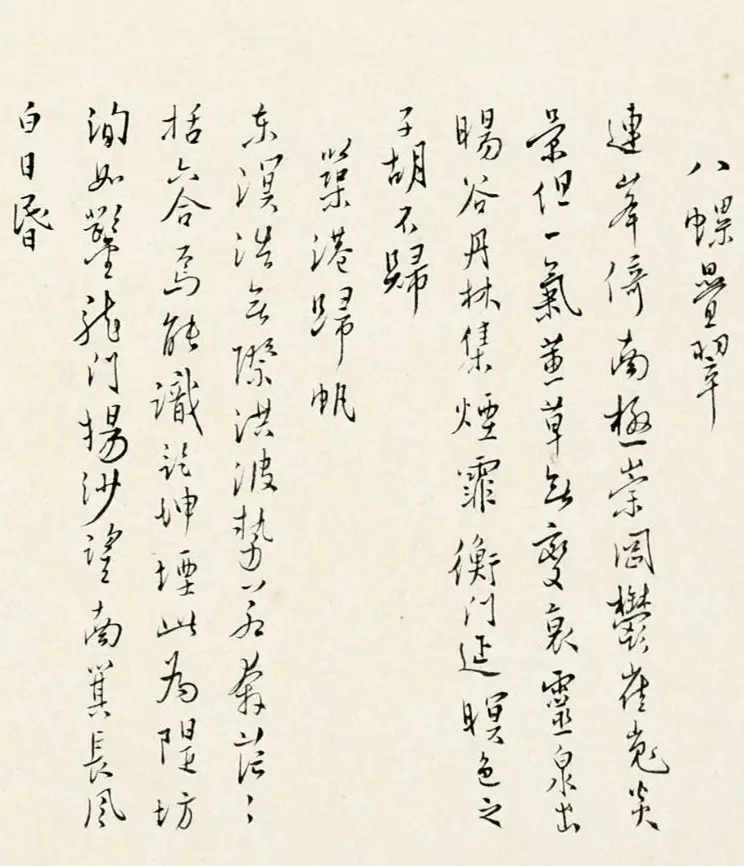 八螺疊翠
連峯倚南極崇岡鬱崔嵬炎
景但一氣薰草無變衰靈泉出
暘谷丹林集煙霏衡門延暝色之
子胡不歸
築港歸帆
東溟浩無際洪波勢若奔茫〻
括六合焉能識乾坤堙此為隄坊
洵如鑿龍门揚沙望南箕長風
白日昏